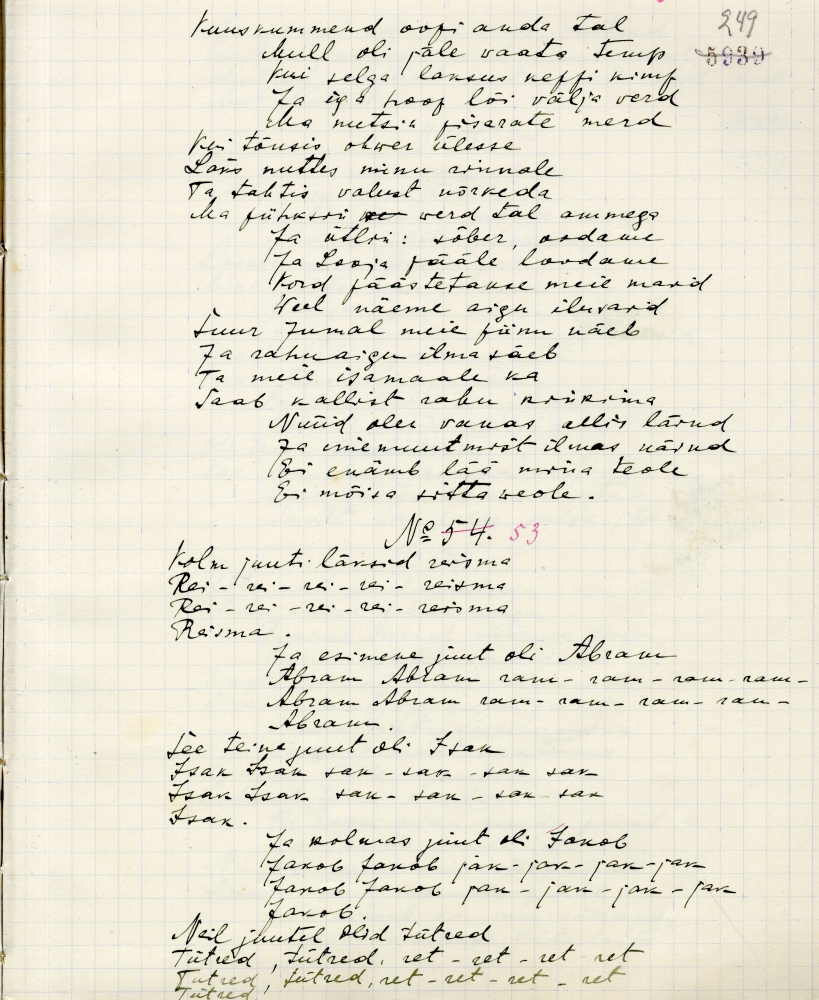 249
5939
Kuuskümmend oopi anda tal
Mull oli jäle vaata temp
Kui selga laksus keppi kimp
Ja iga hoop lõi välja verd
Ma nutsin pisarate merd
Kui tõusis ohwer ülesse
Läks nuttes minu rinnale
Ta tahtis valust nõrkeda
Ma pühksin verd tal ammega
Ja ütlsin: sõber, oodame
Ja Looja pääle loodame
Kord päästetakse meie maid
Weel näeme aigu ilusaid
Suur Jumal meie piinu näeb
Ja rahuaigu ilma säeb
Ta meie isamaale ka
Saab kallist rahu
Nüüid olen vanas allis läind
Ja inemuutmist ilmas näind
Ei enämb lää teole
Ei mõisa sitta weole.
№ 54. 53
Kolm juuti läksid reisma
Rei - rei - rei - rei - reisma
Rei - rei - rei - rei - reisma
Reisma.
Ja esimene juut oli Abram
Abram Abram ram - ram - ram - ram -
Abram Abram ram - ram - ram - ram -
Abram.
See teine juut oli Isak
Isak Isak sak - sak - sak sak
Isak Isak sak - sak - sak sak
Isak.
Ja kolmas juut oli Jakob
Jakob Jakob jak - jak - jak - jak
Jakob Jakob jak - jak - jak - jak
Jakob.
Neil juutel olid tütred
Tütred, tütred, ret - ret - ret - ret
Tütred, tütred, ret - ret - ret - ret
Tütred